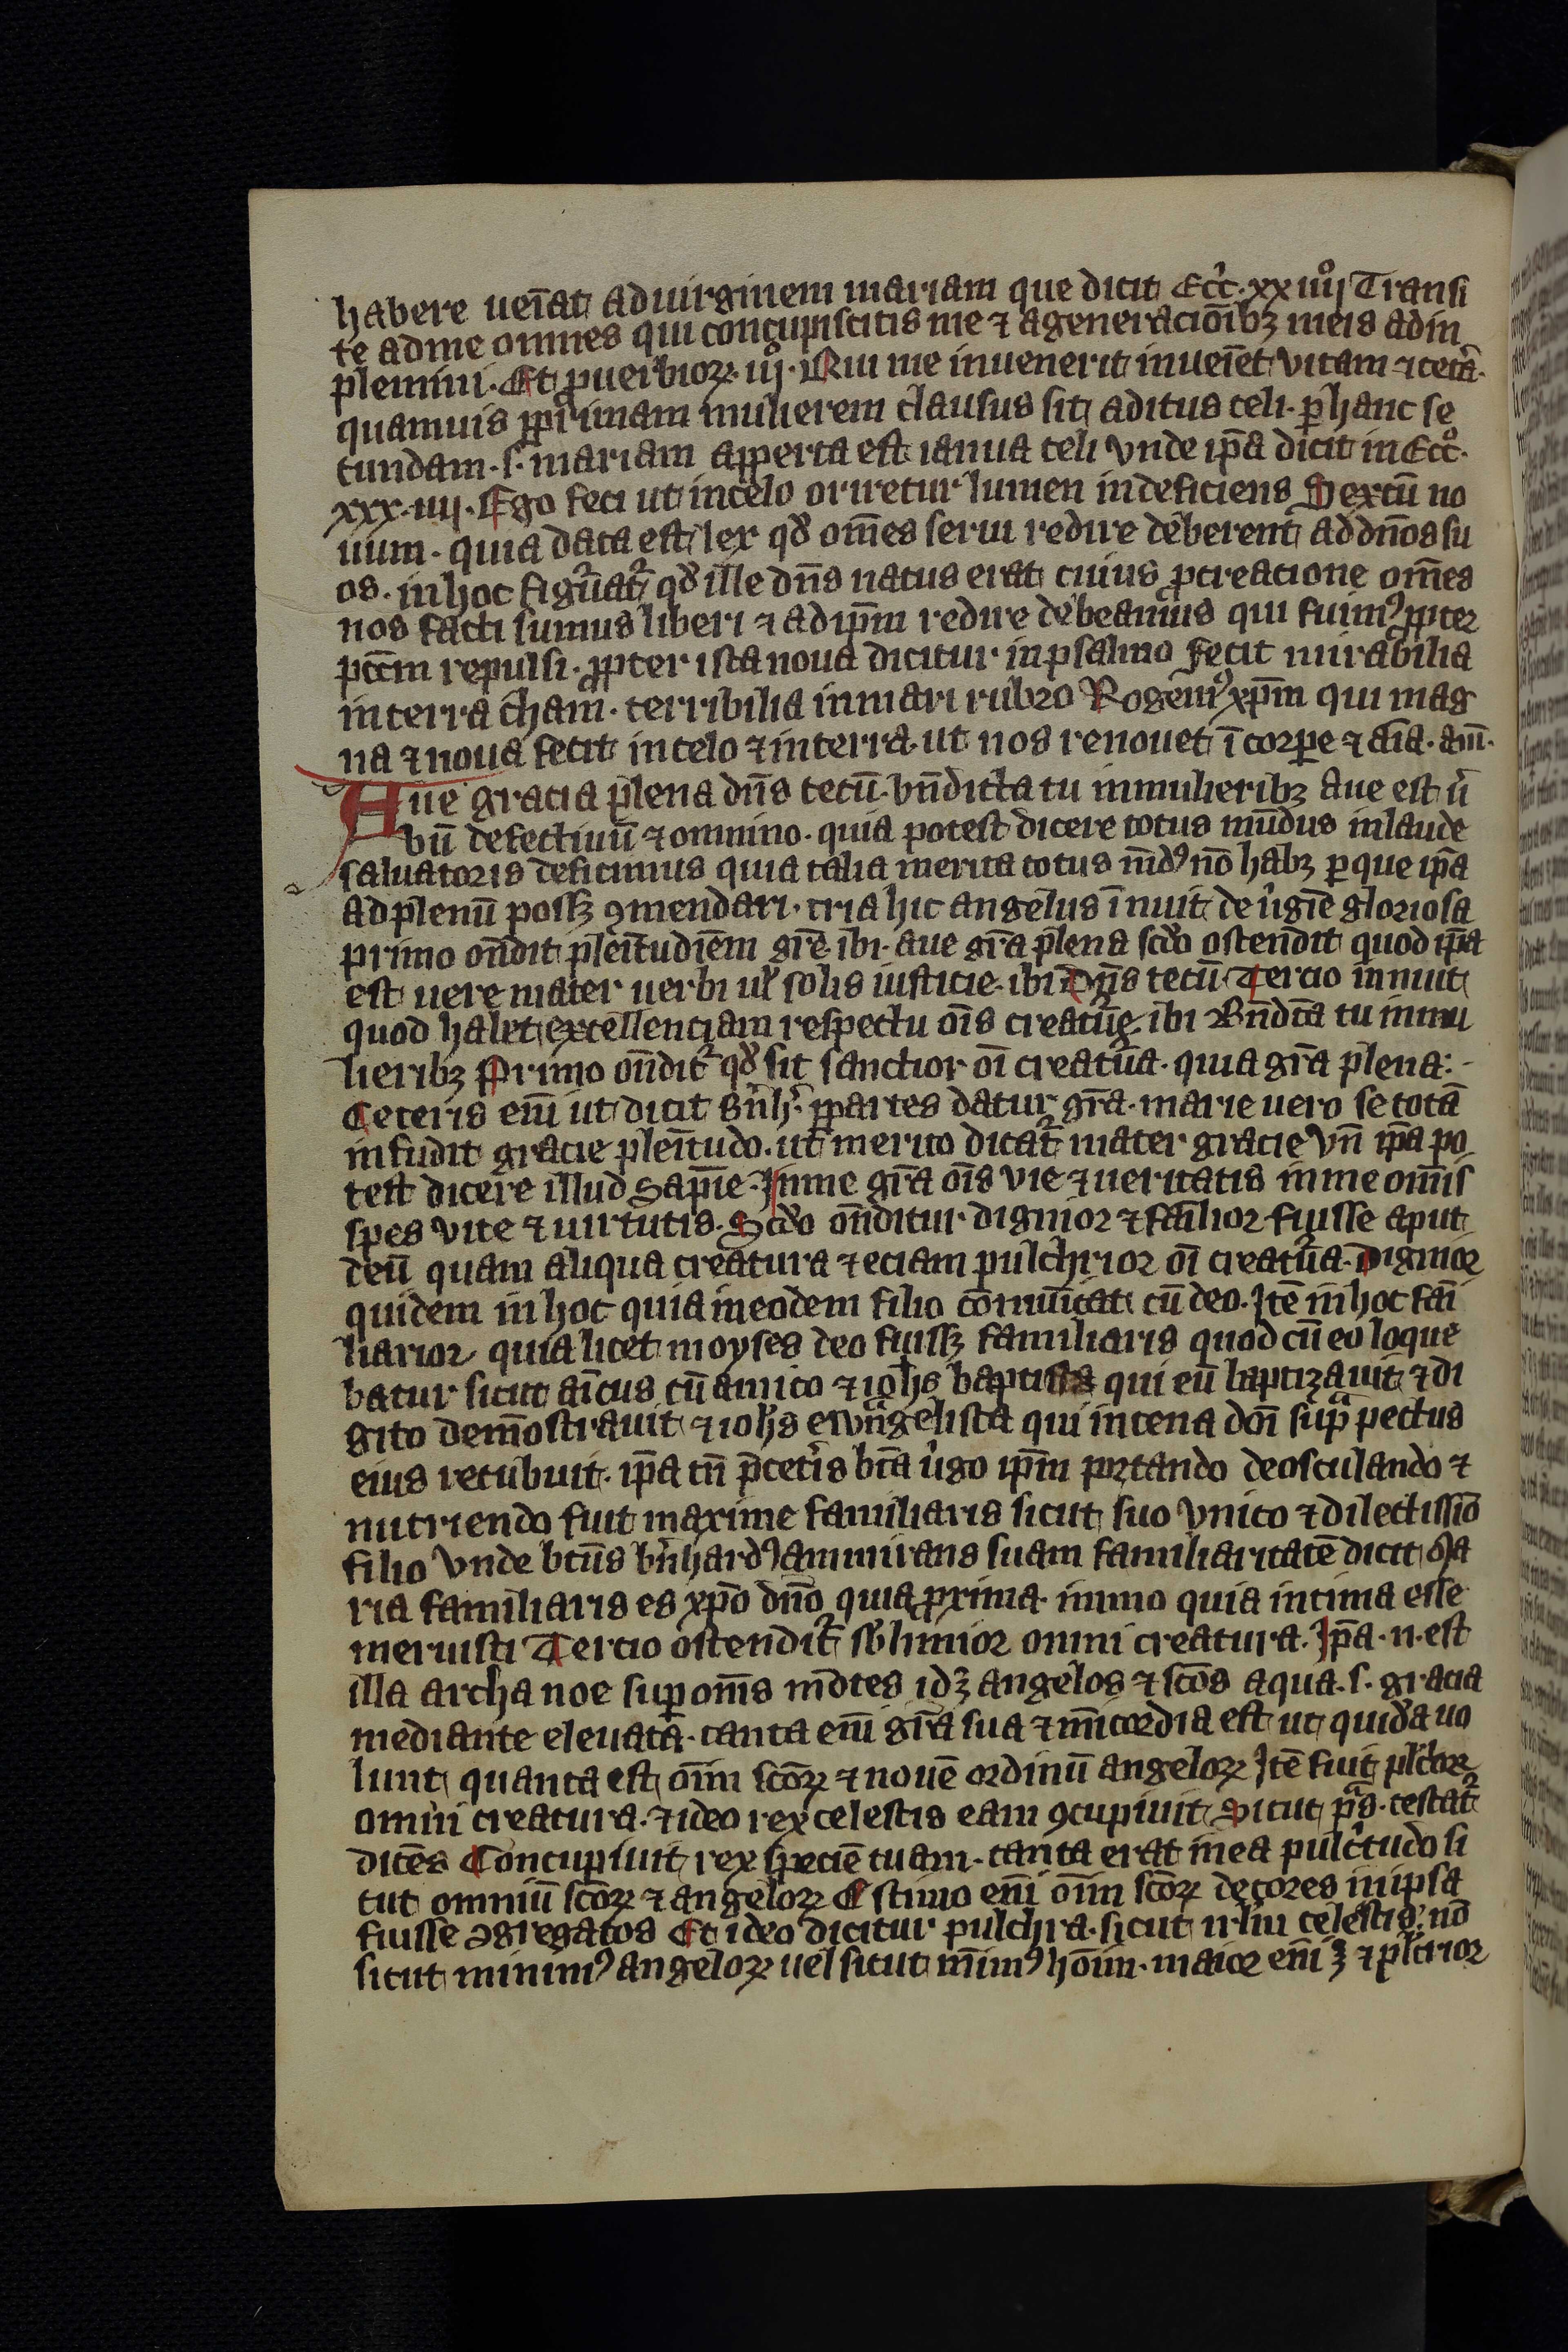 habere uen̄at ad uirginem mariam que dicit Ecc̄c. xxiiijº Transi
te ad me omnes qui concupiscitis me ⁊ a generacioībꝫ meis adin
plemini. Et ꝓuerbioꝝ iijº. Qui me inuenerit inueīet vitam ⁊ cetā.
quamuis ꝑ primam mulierem clausus sit aditus celi. ꝑ hanc se
cundam .s. mariam apperta est ianua celi vnde ip̄a dicit in Ecc̄º.
xxx.iiij. Ego feci ut in celo oriretur lumen indeficiens Sextū no
uum. quia data est lex qđ om̄es serui redire deberent ad dn̄os su
os. in hoc figuratᷣ qđ ille dn̄s natus erat cuius ꝓcreacione om̄es
nos facti sumus liberi ⁊ ad ip̄m redire debeamus qui fuimꝰ ꝓpter
pctm̄ repulsi. ꝓpter ista noua dicitur in psalmo Fecit mirabilia
in terra cham. terribilia in mari rubro Rogemꝰ xp̄m qui mag
na ⁊ noua fecit in celo ⁊ in terra. ut nos renouet ī corꝑe ⁊ aīa. am̄.
Aue gracia plena dn̄s tecū. bn̄dicta tu in mulieribꝫ Aue est u̾
bū defectiuū ⁊ omnino. quia potest dicere totus mundus in laude
saluatoris deficimus quia talia merita totus mūdꝰ nō habꝫ ꝑ que ip̄a
ad plenū possꝫ ꝯmendari. tria hic angelus īnuit de u̾gīe gloriosa
primo on̄dit plenitudīem gr̄e. ibi. aue gr̄a plena sc̄do ostendit quod ip̄a
est uere mater uerbi ul̄ solis iusticie. ibi Dn̄s tecū Tercio innuit
quod habet excellenciam respectu oīs creatūe. ibi Bn̄dc̄a tu in mu
lieribꝫ Primo on̄ditᷣ qđ sit sanctior oī creatūa. quia gr̄a plena:-
Ceteris enī ut dicit br̄nh. ꝑ partes datur gr̄a. marie uero se totā
infudit gracie plenitudo. ut merito dicatᷣ mater gracie vn̄ ip̄a po
test dicere illud Sapīe. In me gr̄a oīs vie ⁊ ueritatis in me om̄is
spes vite ⁊ uirtutis. Sc̄do on̄ditur dignior ⁊ fāilior fuisse aput
deū quam aliqua creatura ⁊ eciam pulchrior oī creatūa. Dignior
quidem in hoc quia in eodem filio cōmūicat cū deo. Itē in hoc fāi
liarior quia licet moyses deo fuissꝫ familiaris quod cū eo loque
batur sicut aīcus cū amico ⁊ ioh̄s baptista qui eū baptizauit ⁊ di
gito demōstrauit ⁊ ioh̄s ewāngelista qui in cena dn̄i supᷓ pectus
eius recubuit. ip̄a tn̄ p̄ceteris bt̄a u̾go ip̄m portando deosculando ⁊
nutriendo fuit maxime familiaris sicut suo vnico ⁊ dilectissīo
filio vnde bt̄us bn̄hardꝰ ammirans suam familiaritatē dicit Ma
ria familiaris es xp̄o dn̄o quia ꝓxima. immo quia intima esse
meruisti Tercio ostenditᷣ sb̄limior omni creatura. Ip̄a .n. est
illa archa noe suꝑ om̄s mōtes idꝫ angelos ⁊ sc̄os aqua .s. gracia
mediante eleuata. tanta enī gr̄a sua ⁊ mīcordia est ut quidā uo
lunt quanta est oīm sc̄oꝝ ⁊ nouē ordinū angeloꝝ Itē fuit pl̄cior
omni creatura. ⁊ ideo rex celestis eam ꝯcupiuit Sicut pᷓs. testatᷣ
dicēs Concupiuit rex speciē tuam. tanta erat in ea pulc̄tudo si
cut omniū sc̄oꝝ ⁊ angeloꝝ Estimo enī oīm sc̄oꝝ decores in ipsa
fuisse ꝯgregatos Et ideo dicitur pulchra. sicut irl̄m celestis. nō
sicut minimꝰ angeloꝝ uel sicut mīimꝰ hoīm. maior enī ꝫ ⁊ pl̄crior